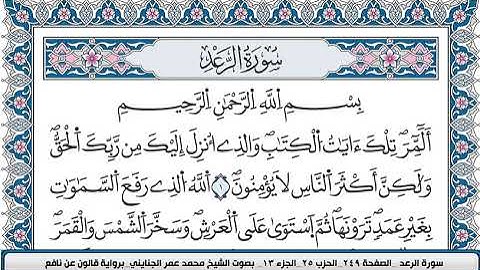 سُورَةُ الرَّعْدِ
بِسْمِ اللَّهِ الرَّحْمَٰنِ الرَّحِيمِ
أَلَٓمِّٓرۖ تِلْكَ ءَايَٰتُ اُ۬لْكِتَٰبِۖ وَالذِےٓ أُنزِلَ إِلَيْكَ مِن رَّبِّكَ اَ۬لْحَقُّۖ
وَلَٰكِنَّ أَكْثَرَ اَ۬لنَّاسِ لَا يُؤْمِنُونَۖ ١ اَ۬للَّهُ اُ۬لذِے رَفَعَ اَ۬لسَّمَٰوَٰتِ
بِغَيْرِ عَمَدٖ تَرَوْنَهَاۖ ثُمَّ اَ۪سْتَوَىٰ عَلَى اَ۬لْعَرْشِۖ وَسَخَّرَ اَ۬لشَّمْسَ وَالْقَمَرَۖ
سورة الرعد _ الصفحة ٢٤٩_ الحزب ٢٥_ الجزء ١٣_ بصوت الشيخ محمد عمر الجنايني_ برواية قالون عن نافع